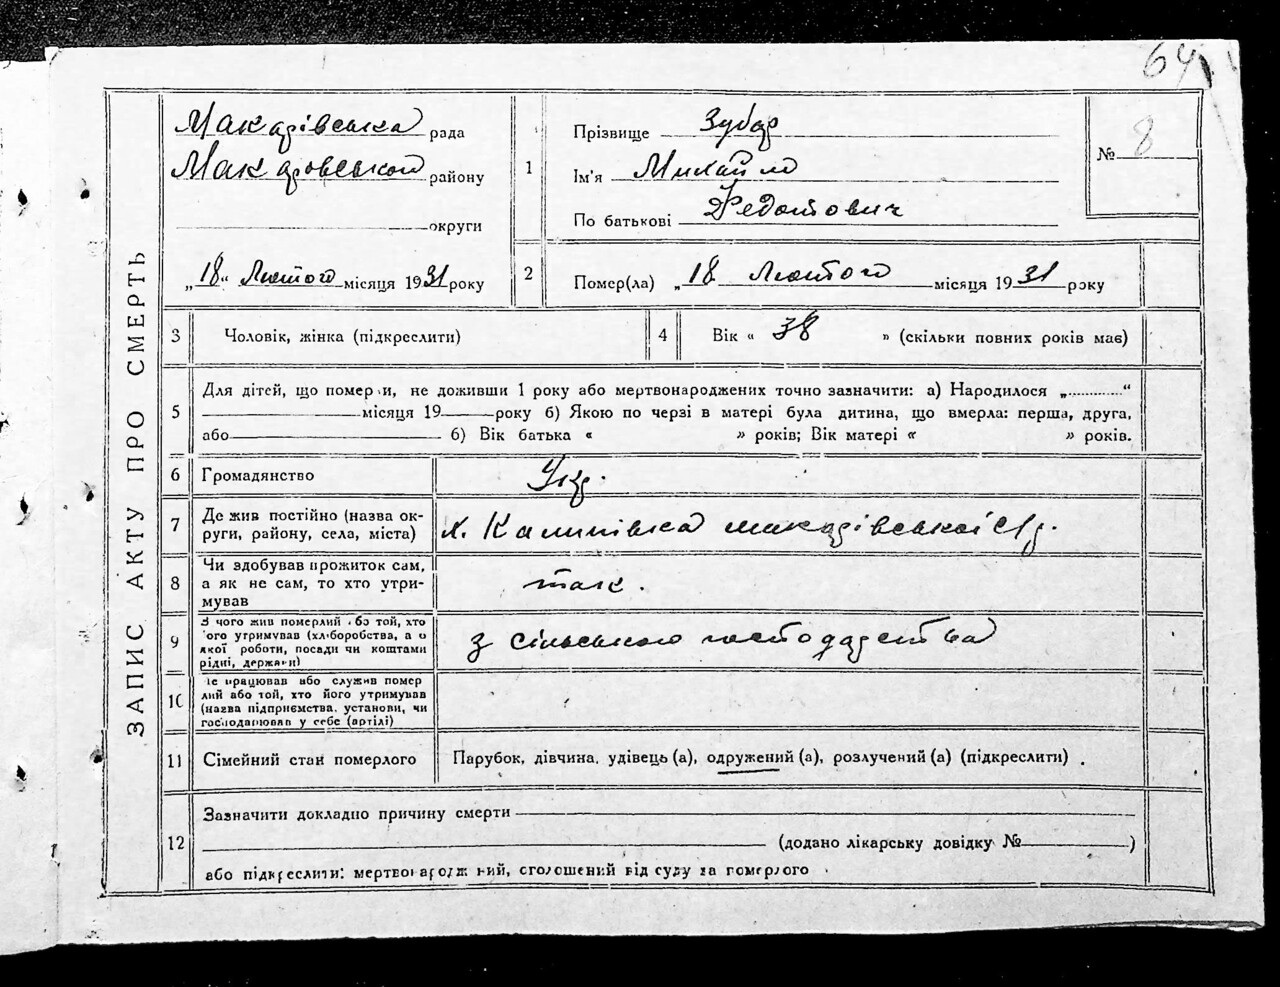 64
ЗАПИС АКТУ ПРО СМЕРТЬ
Макарівська рада
Макаровського району
округи
„18“ Лютого місяця 1931 року
1
Прізвище Зубар
Ім'я Михайло
По батькові Федотович
№ 8
2
Помер(ла) „18 Лютого місяця 1931 року
3
Чоловік, жінка (підкреслити)
4
Вік « 38 » (скільки повних років має)
5
Для дітей, що померли, не доживши 1 року або мертвонароджених точно зазначити: а) Народилося „............“
місяця 19 року б) Якою по черзі в матері була дитина, що вмерла: перша, друга,
або б) Вік батька « » років; Вік матері « » років.
6
Громадянство
Укр.
7
Де жив постійно (назва ок-
руги, району, села, міста)
х. Калинівка макарівської с/р.
8
Чи здобував прожиток сам,
а як не сам, то хто утри-
мував
так.
9
З чого жив померлий або той, хто
його утримував (хліборобства, а о
якої роботи, посади чи коштами
рідні, держави)
з сільського господарства
10
Де працював або служив помер
лий або той, хто його утримував
(назва підприємства, установи, чи
господарював у себе (артілі)
11
Сімейний стан померлого
Парубок, дівчина, удівець (а), одружений (а), розлучений (а) (підкреслити)
12
Зазначити докладно причину смерти
(додано лікарську довідку № )
або підкреслити: мертвонароджений, оголошений від суду за померлого